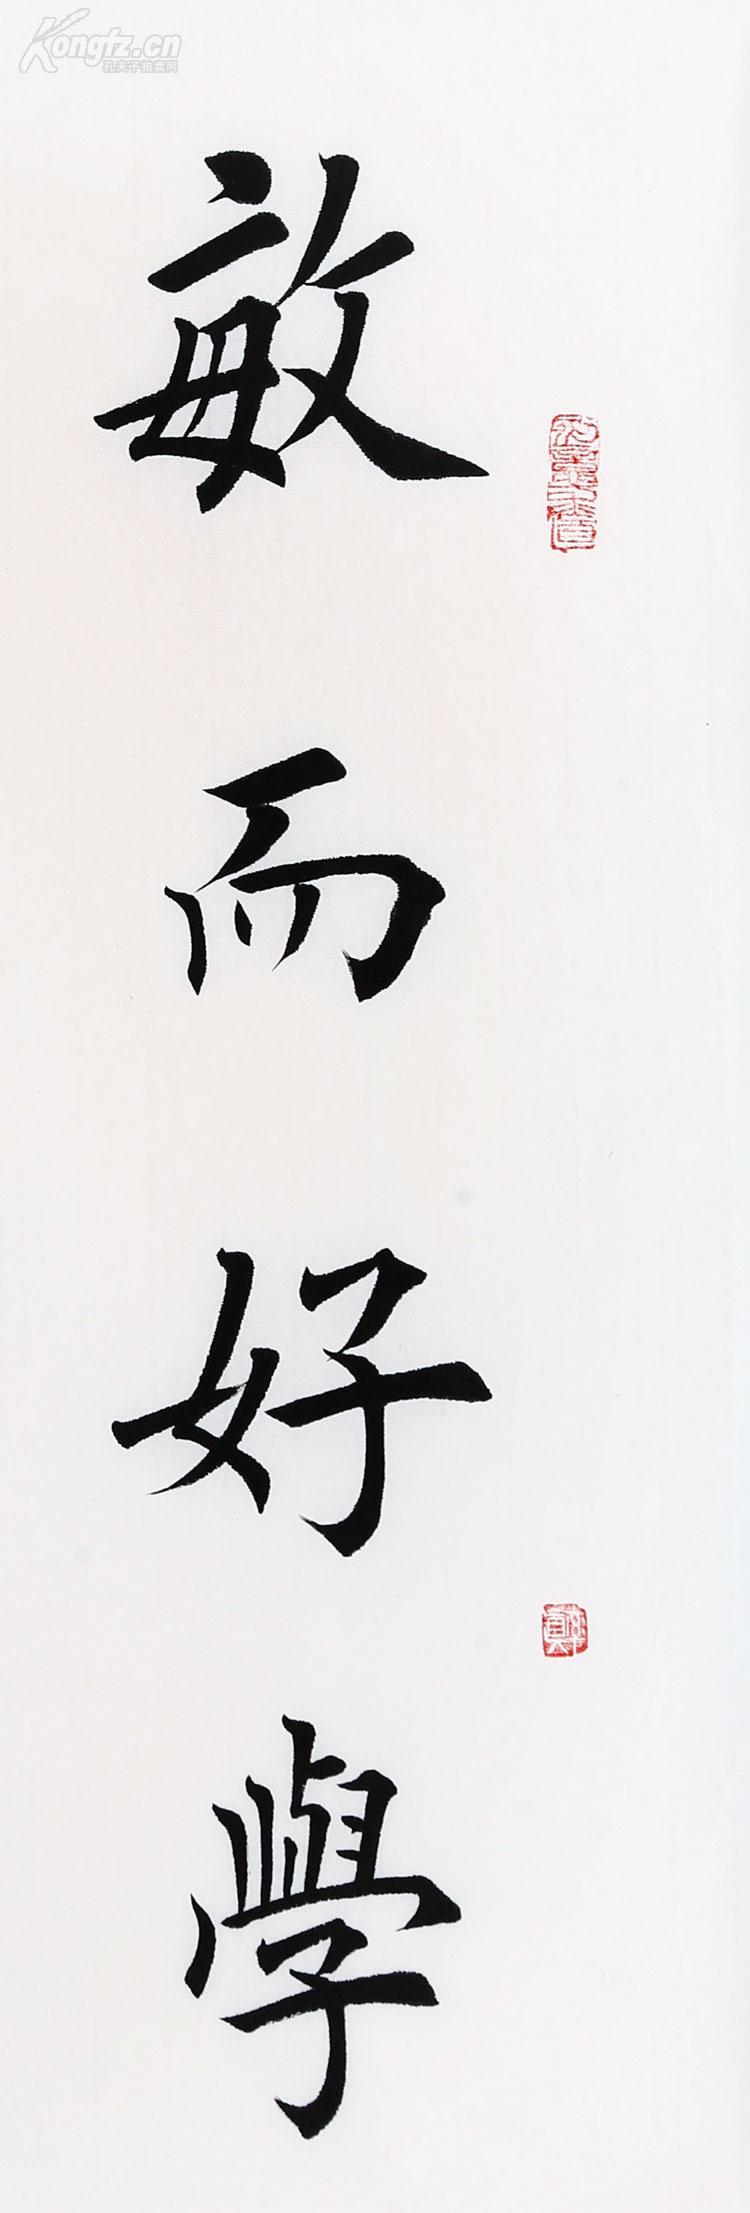 Kongfz.cn
孔夫子拍卖网
敏而好學